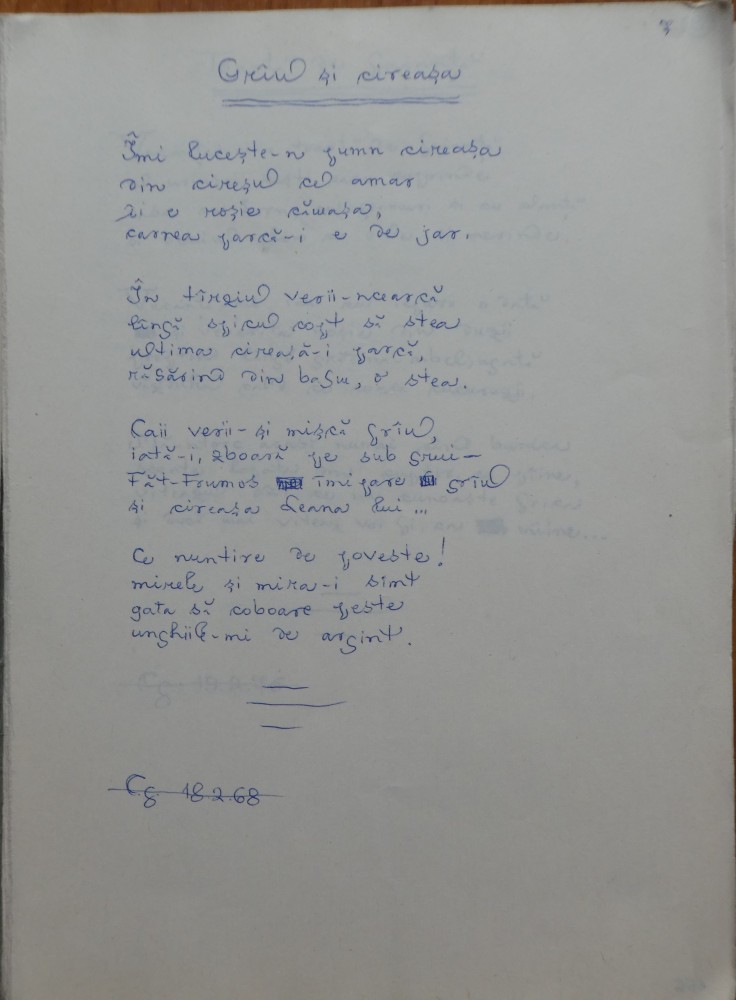 Grîu și cireașa
Îmi lucește-n pumn cireașa
din cireșul cel amar
Ii e roșie cămașa,
carnea parcă-i e de jar.
În tîrziul verii-ncearcă
lîngă spicul copt să stea
ultima cireașă-i parcă,
răsărind din basm, o stea.
Caii verii-și mișcă grîul,
iată-i, zboară pe sub grui—
Făt-Frumos îmi pare grîul
și cireașa Leana lui...
Ce nuntire de poveste!
mirele și mira-i sînt
gata să coboare peste
unghiile-mi de argint.
Cg 18.2.68